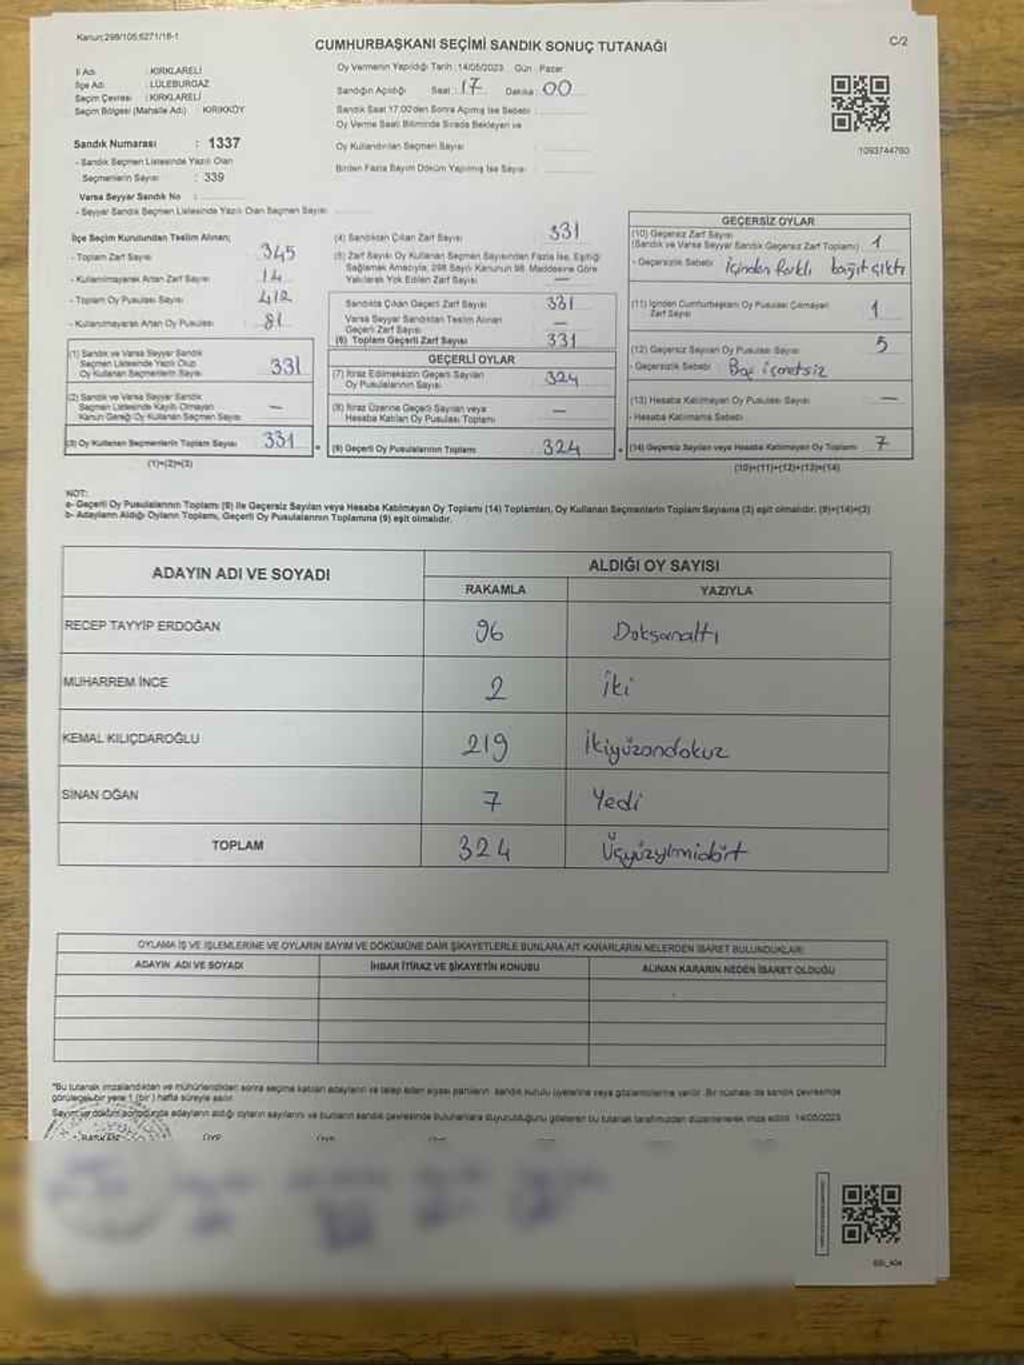 Kanun:298/105;6271/18-1
CUMHURBAŞKANI SEÇİMİ SANDIK SONUÇ TUTANAĞI
C/2
İl Adı : KIRKLARELİ
İlçe Adı : LÜLEBURGAZ
Seçim Çevresi : KIRKLARELİ
Seçim Bölgesi (Mahalle Adı) KIRIKKÖY
Sandık Numarası : 1337
- Sandık Seçmen Listesinde Yazılı Olan
Seçmenlerin Sayısı : 339
Varsa Seyyar Sandık No :
- Seyyar Sandık Seçmen Listesinde Yazılı Olan Seçmen Sayısı
Oy Vermenin Yapıldığı Tarih :14/05/2023 Gün : Pazar
Sandığın Açıldığı Saat : 17 Dakika : 00
Sandık Saat 17.00'den Sonra Açılmış İse Sebebi :
Oy Verme Saati Bitiminde Sırada Bekleyen ve
Oy Kullandırılan Seçmen Sayısı :
Birden Fazla Sayım Döküm Yapılmış İse Sayısı :
1093744760
İlçe Seçim Kurulundan Teslim Alınan;
- Toplam Zarf Sayısı 345
- Kullanılmayarak Artan Zarf Sayısı 14
- Toplam Oy Pusulası Sayısı 412
- Kullanılmayarak Artan Oy Pusulası 81
(1) Sandık ve Varsa Seyyar Sandık
Seçmen Listesinde Yazılı Olup
Oy Kullanan Seçmenlerin Sayısı 331
(2) Sandık ve Varsa Seyyar Sandık
Seçmen Listesinde Kayıtlı Olmayan
Kanun Gereği Oy Kullanan Seçmen Sayısı —
(3) Oy Kullanan Seçmenlerin Toplam Sayısı 331
(1)+(2)=(3)
(4) Sandıktan Çıkan Zarf Sayısı 331
(5) Zarf Sayısı Oy Kullanan Seçmen Sayısından Fazla İse, Eşitliği
Sağlamak Amacıyla, 298 Sayılı Kanunun 98. Maddesine Göre
Yakılarak Yok Edilen Zarf Sayısı —
Sandıkta Çıkan Geçerli Zarf Sayısı 331
Varsa Seyyar Sandıktan Teslim Alınan
Geçerli Zarf Sayısı —
(6) Toplam Geçerli Zarf Sayısı 331
GEÇERLİ OYLAR
(7) İtiraz Edilmeksizin Geçerli Sayılan
Oy Pusulalarının Sayısı 324
(8) İtiraz Üzerine Geçerli Sayılan veya
Hesaba Katılan Oy Pusulası Toplamı —
(9) Geçerli Oy Pusulalarının Toplamı 324
GEÇERSİZ OYLAR
(10) Geçersiz Zarf Sayısı
(Sandık ve Varsa Seyyar Sandık Geçersiz Zarf Toplamı) 1
- Geçersizlik Sebebi İçinden farklı kağıt çıktı
(11) İçinden Cumhurbaşkanı Oy Pusulası Çıkmayan
Zarf Sayısı 1
(12) Geçersiz Sayılan Oy Pusulası Sayısı 5
- Geçersizlik Sebebi Boş işaretsiz
(13) Hesaba Katılmayan Oy Pusulası Sayısı —
- Hesaba Katılmama Sebebi
(14) Geçersiz Sayılan veya Hesaba Katılmayan Oy Toplamı 7
(10)+(11)+(12)+(13)=(14)
NOT:
a- Geçerli Oy Pusulalarının Toplamı (9) ile Geçersiz Sayılan veya Hesaba Katılmayan Oy Toplamı (14) Toplamları, Oy Kullanan Seçmenlerin Toplam Sayısına (3) eşit olmalıdır. (9)+(14)=(3)
b- Adayların Aldığı Oyların Toplamı, Geçerli Oy Pusulalarının Toplamına (9) eşit olmalıdır.
ADAYIN ADI VE SOYADI
ALDIĞI OY SAYISI
RAKAMLA YAZIYLA
RECEP TAYYİP ERDOĞAN 96 Doksanaltı
MUHARREM İNCE 2 İki
KEMAL KILIÇDAROĞLU 219 İkiyüzondokuz
SİNAN OĞAN 7 Yedi
TOPLAM 324 Üçyüzyirmidört
OYLAMA İŞ VE İŞLEMLERİNE VE OYLARIN SAYIM VE DÖKÜMÜNE DAİR ŞİKAYETLERLE BUNLARA AİT KARARLARIN NELERDEN İBARET BULUNDUKLARI
ADAYIN ADI VE SOYADI İHBAR İTİRAZ VE ŞİKAYETİN KONUSU ALINAN KARARIN NEDEN İBARET OLDUĞU
*Bu tutanak imzalandıktan ve mühürlendikten sonra seçime katılan adayların ve talep eden siyasi partilerin sandık kurulu üyelerine veya gözlemcilerine verilir. Bir nüshası da sandık çevresinde
görülecek bir yere 1 (bir) hafta süreyle asılır.
Sayım ve döküm sonucunda adayların aldığı oyların sayılarını ve bunların sandık çevresinde bulunanlara duyurulduğunu gösteren bu tutanak tarafımızdan düzenlenerek imza edildi. 14/05/2023
BAŞKAN